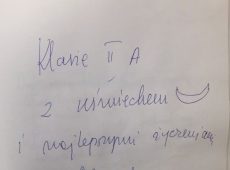 Klasie II A
z uśmiechem
i najlepszymi życzeniami